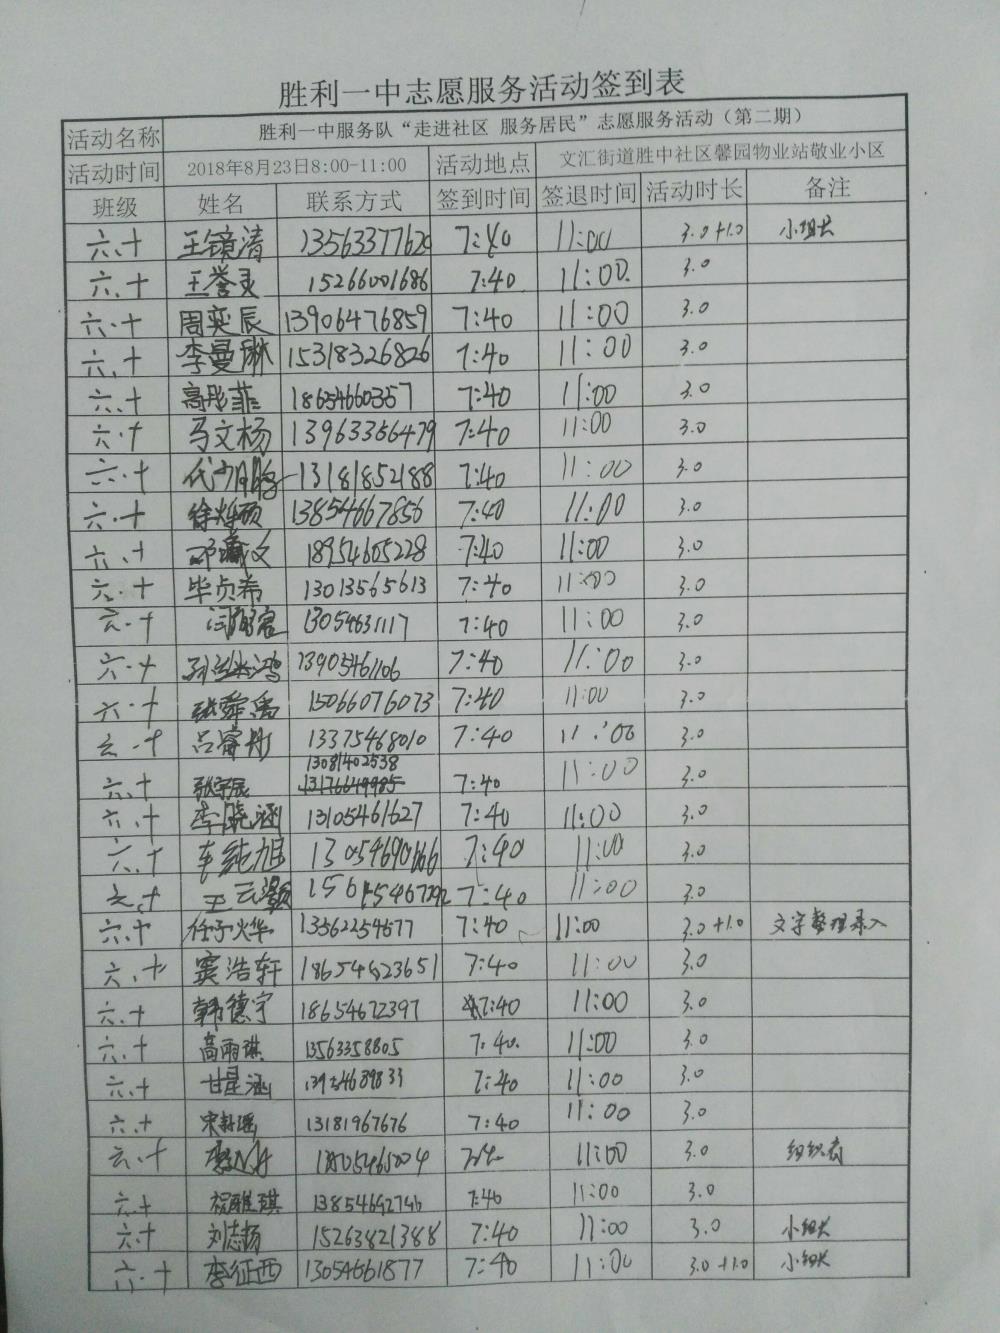 胜利一中志愿服务活动签到表
活动名称 胜利一中服务队“走进社区 服务居民”志愿服务活动（第二期）
活动时间 2018年8月23日8:00-11:00 活动地点 文汇街道胜中社区馨园物业站敬业小区
班级 姓名 联系方式 签到时间 签退时间 活动时长 备注
六.十 王镜清 13563377620 7:40 11:00 3.0+1.0 小组长
六.十 王誉灵 15266001686 7:40 11:00 3.0
六.十 周奕辰 13906476859 7:40 11:00 3.0
六.十 李曼琳 15318326826 7:40 11:00 3.0
六.十 高彤菲 18654660357 7:40 11:00 3.0
六.十 马文杨 13963356479 7:40 11:00 3.0
六.十 13181852188 7:40 11:00 3.0
六.十 徐烁硕 13854667856 7:40 11:00 3.0
六.十 18954605228 7:40 11:00 3.0
六.十 毕贞希 13013565613 7:40 11:00 3.0
六.十 13054631117 7:40 11:00 3.0
六.十 13905461106 7:40 11:00 3.0
六.十 张舜禹 15066076073 7:40 11:00 3.0
六.十 吕睿彤 13375468010 7:40 11:00 3.0
13081402538
六.十 张宇辰 13176649985 7:40 11:00 3.0
六.十 李晓涵 13105461627 7:40 11:00 3.0
六.十 车纯旭 7:40 11:00 3.0
六.十 王云灏 7:40 11:00 3.0
六.十 任子烨 13562254677 7:40 11:00 3.0+1.0 文字整理录入
六.十 窦浩轩 18654623651 7:40 11:00 3.0
六.十 韩德宇 18654672397 7:40 11:00 3.0
六.十 高雨琪 13563358805 7:40. 11:00 3.0
六.十 甘星涵 7:40 11:00 3.0
六.十 13181967676 7:40 11:00 3.0
六.十 11:00 3.0 组织者
六.十 祝雅琪 7:40 11:00 3.0
六.十 刘志扬 15263821388 7:40 11:00 3.0 小组长
六.十 李征西 13054661877 7:40 11:00 3.0+1.0 小组长